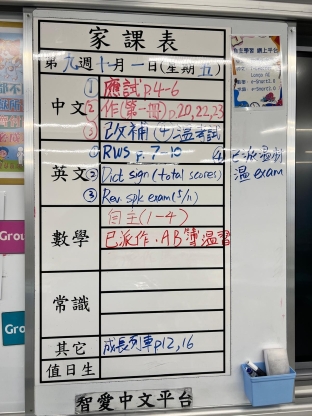 家課表
第九週十月1日(星期五)
中文
① 應試p.4-6
② 作(第一冊)p.20,22,23
③ 改補(4)/溫考試
英文
① RWS p.7-10
② Dict sign (total scores)
③ Rev. spk exam (5/11)
④ 已派溫習
溫 exam
數學
自主(1-4)
已派作、AB簿溫習
常識
其它
成長列車p12,16
值日生
智愛中文平台
自主學習 網上平台
Grou
Gro